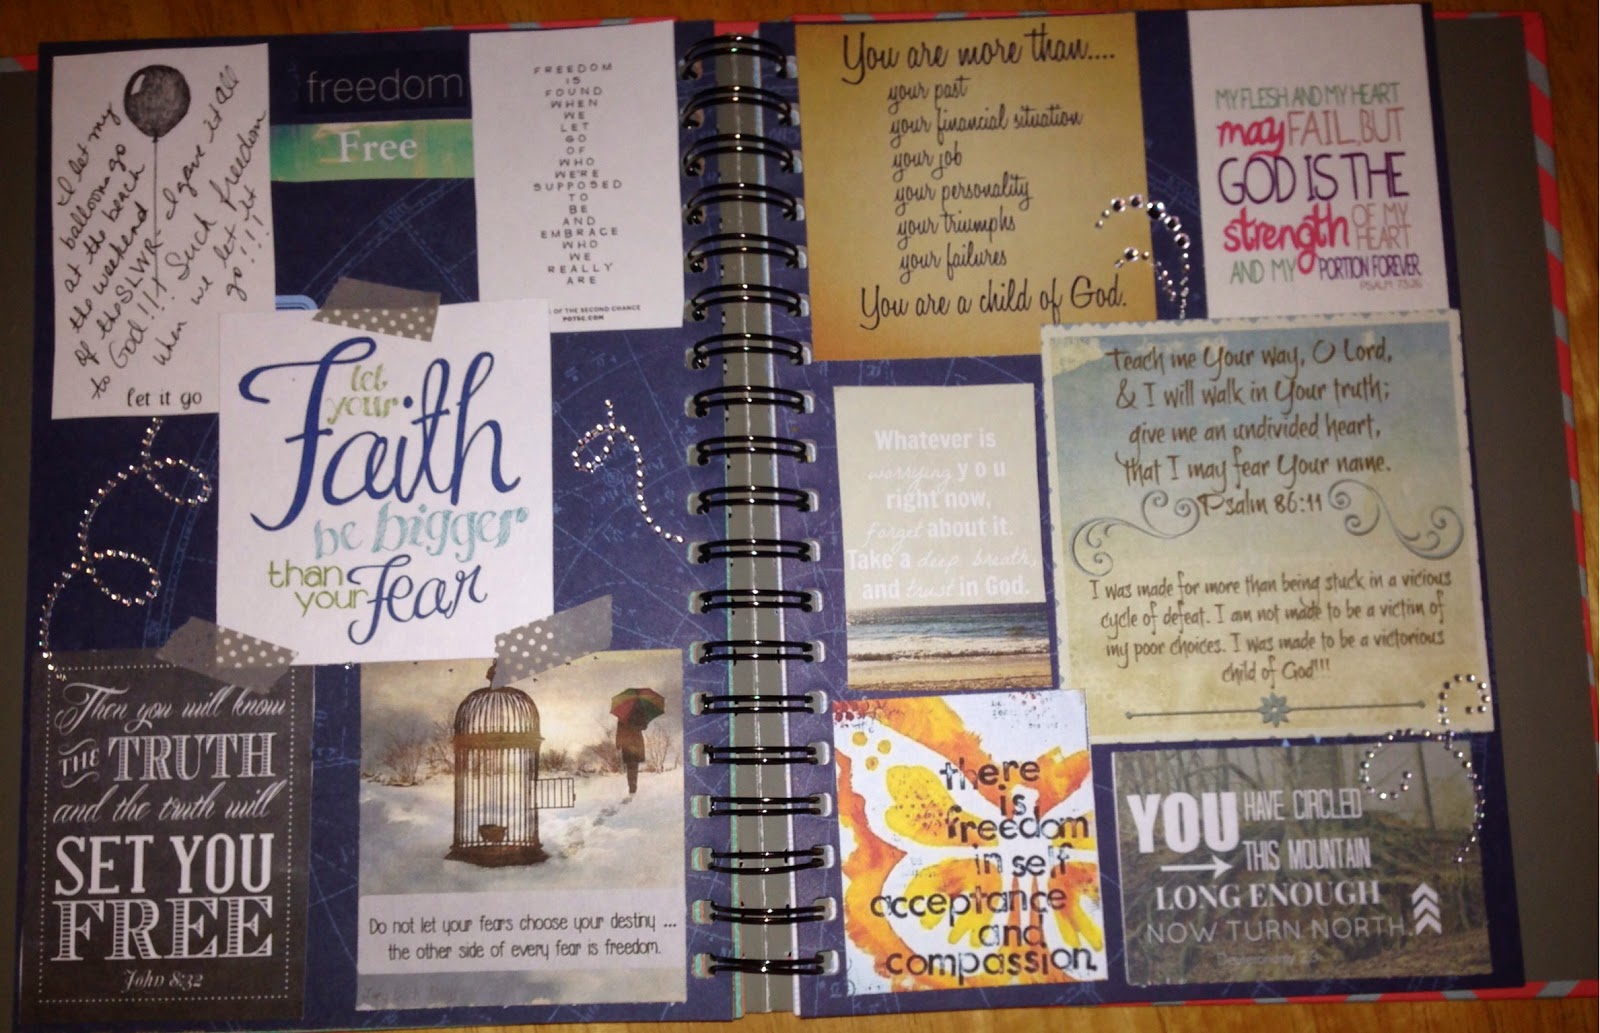 I let my
balloons go
at the beach
the weekend
of the SLWR - I gave it all
to God!!! Such freedom
when we let it
go!!!!
let it go
freedom
Free
FREEDOM
IS
FOUND
WHEN
WE
LET
GO
OF
WHO
WE'RE
SUPPOSED
TO
BE
AND
EMBRACE
WHO
WE
REALLY
ARE
OF THE SECOND CHANCE
POTSC.COM
let
your
Faith
be bigger
than
your fear
Then you will know
THE TRUTH
and the truth will
SET YOU
FREE
John 8:32
Do not let your fears choose your destiny ...
the other side of every fear is freedom.
You are more than....
your past
your financial situation
your job
your personality
your triumphs
your failures
You are a child of God.
MY FLESH AND MY HEART
may FAIL, BUT
GOD IS THE
strength OF MY HEART
AND MY PORTION FOREVER
PSALM 73:26
Teach me Your way, O Lord,
& I will walk in Your truth;
give me an undivided heart,
that I may fear Your name.
Psalm 86:11
I was made for more than being stuck in a vicious
cycle of defeat. I am not made to be a victim of
my poor choices. I was made to be a victorious
child of God!!!
Whatever is
worrying you
right now,
forget about it.
Take a deep breath,
and trust in God.
there
is
freedom
in self
acceptance
and
compassion.
YOU HAVE CIRCLED
THIS MOUNTAIN
LONG ENOUGH
NOW TURN NORTH.
Deuteronomy 2:3